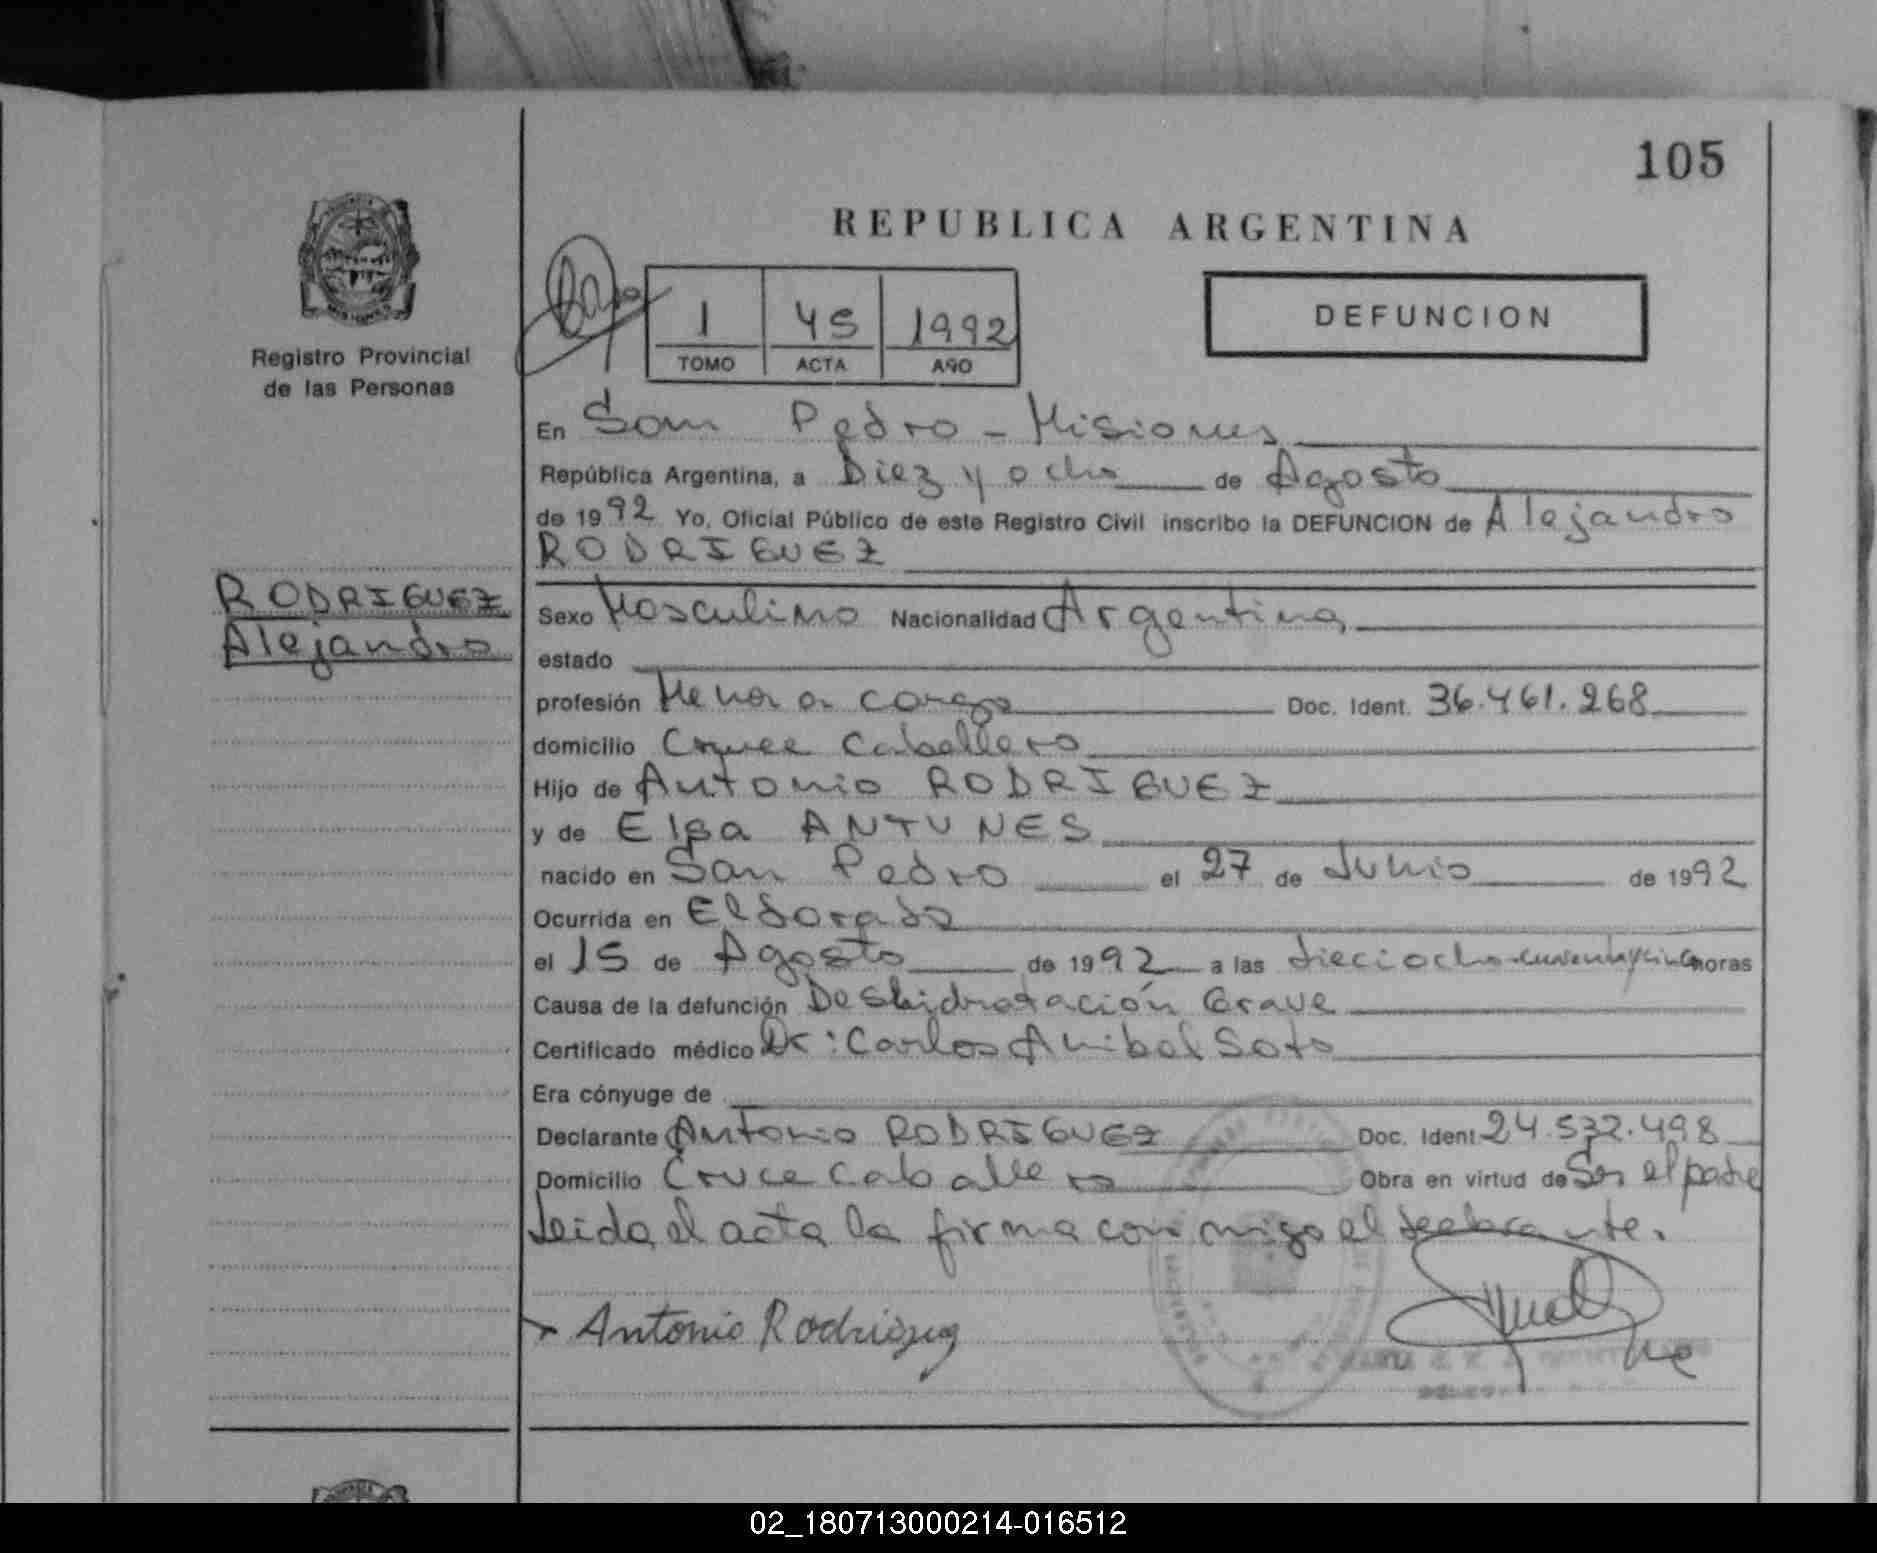 105
REPUBLICA ARGENTINA
Registro Provincial
de las Personas
1 45 1992
TOMO ACTA AÑO
DEFUNCION
En San Pedro - Misiones
República Argentina, a Diez y ocho de Agosto
de 1992 Yo, Oficial Público de este Registro Civil inscribo la DEFUNCION de Alejandro
RODRIGUEZ
RODRIGUEZ
Alejandro
Sexo Masculino Nacionalidad Argentina
estado
profesión Menor a cargo Doc. Ident. 36.461.268
domicilio Cruce Caballero
Hijo de Antonio RODRIGUEZ
y de Elsa ANTUNES
nacido en San Pedro el 27 de Junio de 1992
Ocurrida en Eldorado
el 15 de Agosto de 1992 a las dieciocho cuarenta y cinco horas
Causa de la defunción Deshidratación Grave
Certificado médico Dr: Carlos Anibal Soto
Era cónyuge de
Declarante Antonio RODRIGUEZ Doc. Ident 24.532.498
Domicilio Cruce Caballero Obra en virtud de Ser el padre
Leida el acta la firma con migo el declarante.
Antonio Rodriguez
02_180713000214-016512